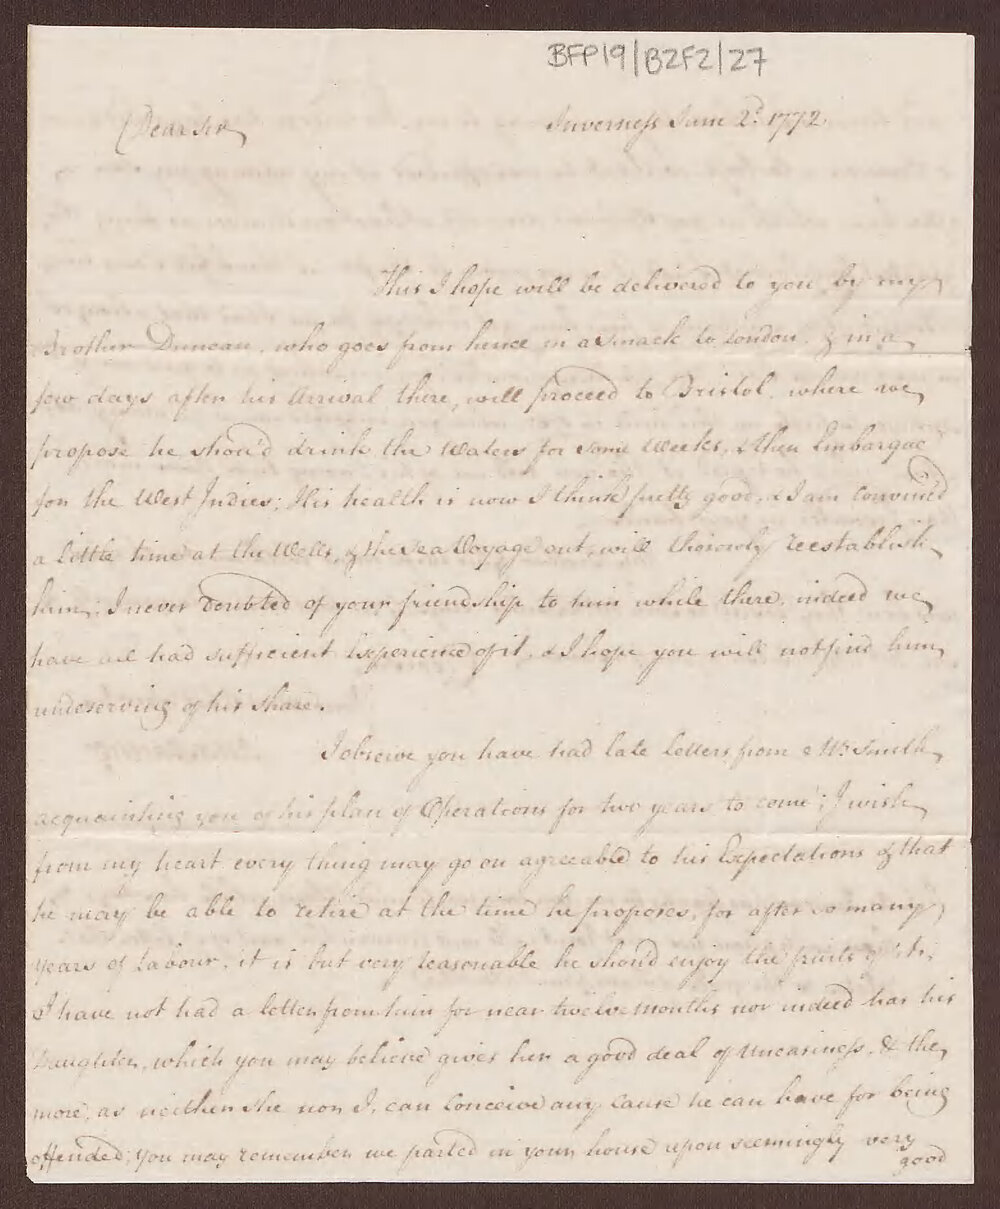 BFP19/B2F2/27
Dear Sir
Inverness June 2d. 1772
This I hope will be delivered to you by my
Brother Duncan, who goes from hence in a Smack to London, & in a
few days after his Arrival there, will proceed to Bristol, where we
propose he shou'd drink the Waters for some Weeks, & then Embarque
for the West Indies; His health is now I think pretty good, & I am Convinc'd
a little time at the Wells, & the Sea Voyage out, will thororoly reestablish
him; I never doubted of your friendship to him while there, indeed we
have all had sufficient Experience of it, & I hope you will not find him
undeserving of his share.
I observe you have had late Letters from Mr. Smith
acquainting you of his plan of Operations for two years to come; I wish
from my heart every thing may go on agreeable to his Expectations & that
he may be able to retire at the time he proposes, for after so many
years of Labour, it is but very reasonable he should enjoy the fruits of it.
I have not had a letter from him for near twelve months nor indeed has his
Daughter, which you may believe gives her a good deal of Uneasiness, & the
more, as neither she nor I, can Conceive any Cause he can have for being
offended; you may remember we parted in your house upon seemingly very
good